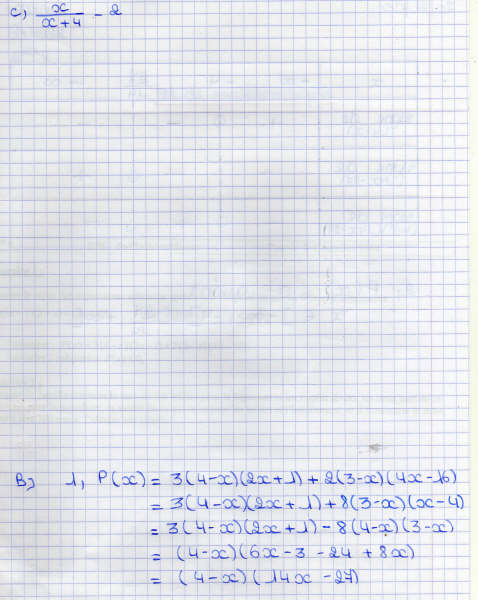 c, x/(x+4) - 2
B, 1, P(x) = 3(4-x)(2x+1) + 2(3-x)(4x-16)
= 3(4-x)(2x+1) + 8(3-x)(x-4)
= 3(4-x)(2x+1) - 8(4-x)(3-x)
= (4-x)(6x-3 - 24 + 8x)
= (4-x)(14x - 27)